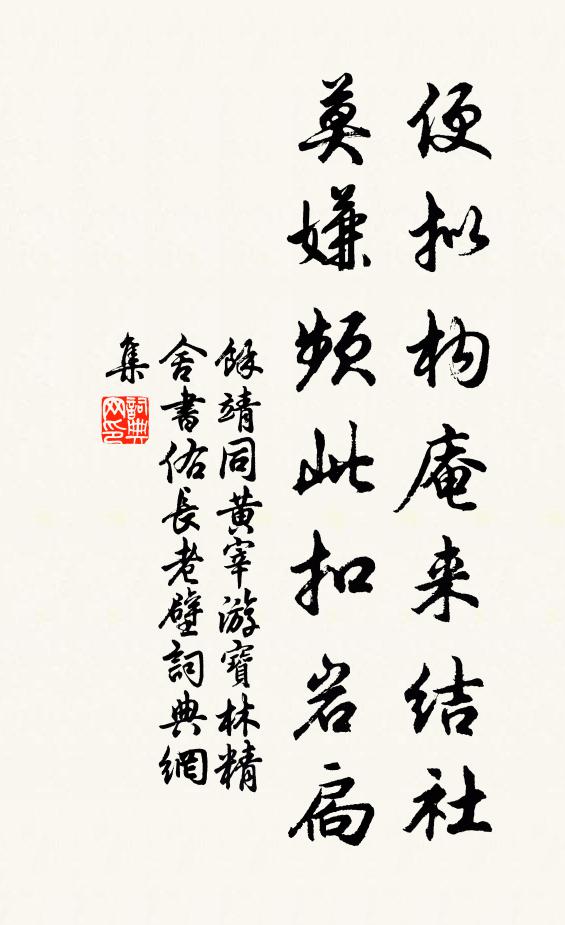 便拟构庵来结社
莫嫌频此扣岩扃
餘靖同黄宰游寶林精
舍書佑長老壁詞典網
集
詞典网印